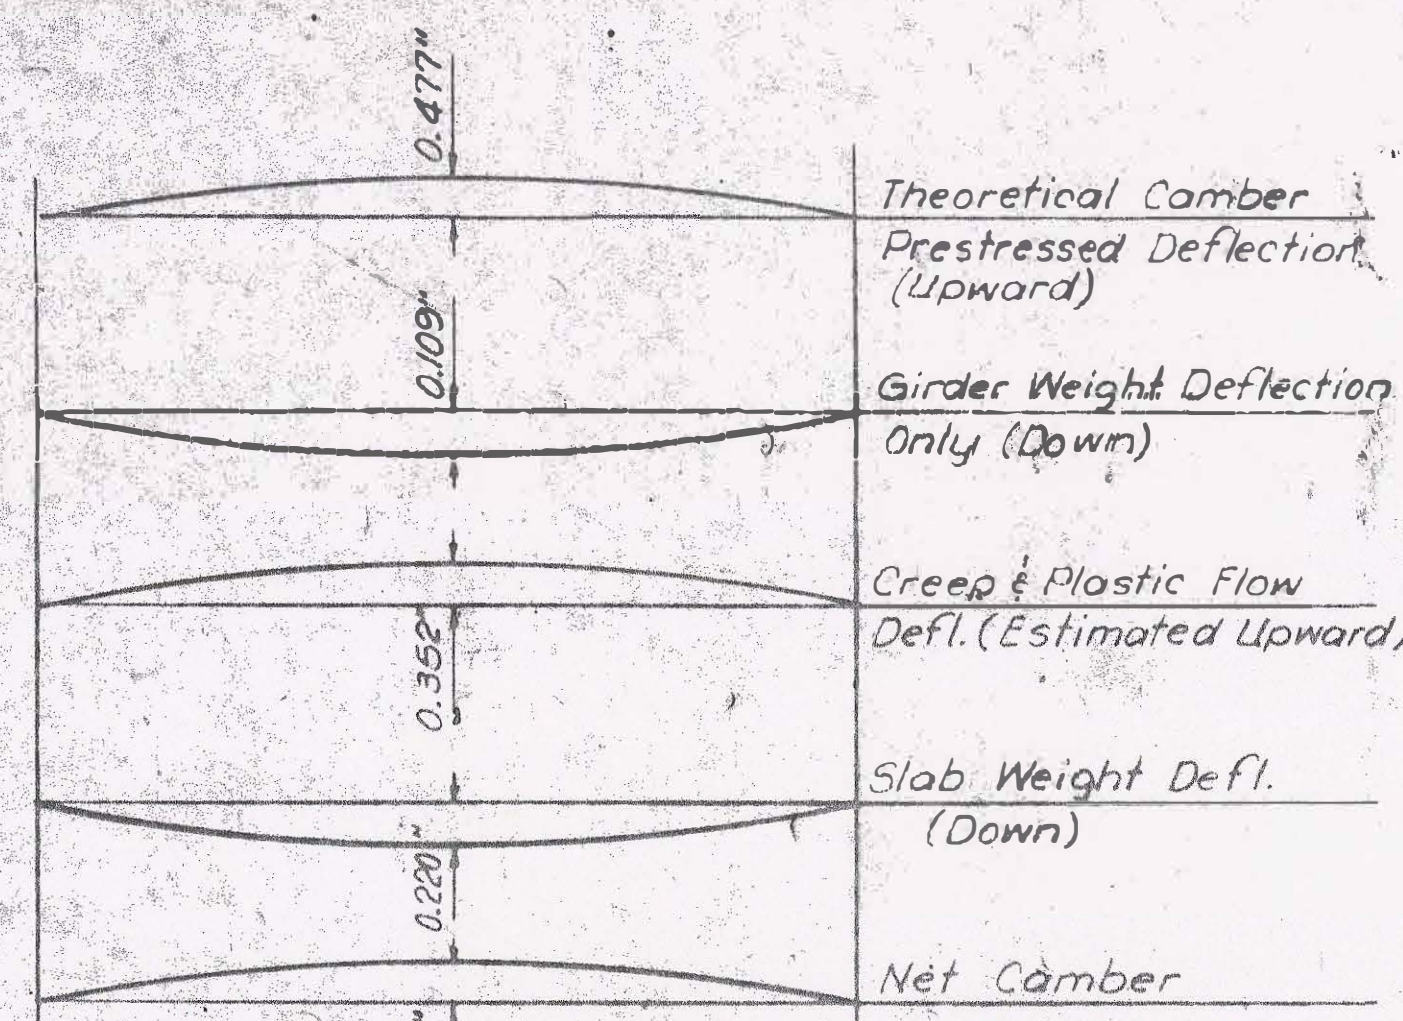 0.477"
Theoretical Camber
Prestressed Deflection
(Upward)
0.109"
Girder Weight Deflection
Only (Down)
Creep & Plastic Flow
Defl. (Estimated Upward)
0.352"
Slab Weight Defl.
(Down)
0.220"
Net Camber
"